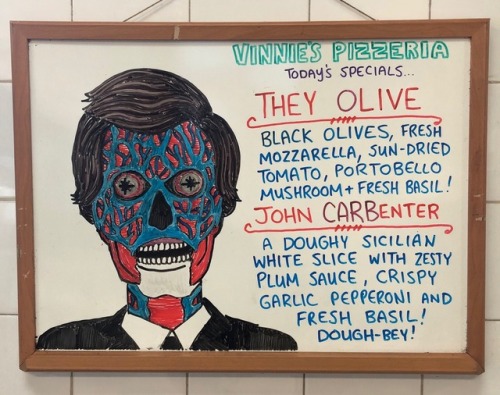 VINNIE'S PIZZERIA
TODAY'S SPECIALS...
THEY OLIVE
BLACK OLIVES, FRESH
MOZZARELLA, SUN-DRIED
TOMATO, PORTOBELLO
MUSHROOM + FRESH BASIL!
JOHN CARBENTER
A DOUGHY SICILIAN
WHITE SLICE WITH ZESTY
PLUM SAUCE, CRISPY
GARLIC PEPPERONI AND
FRESH BASIL!
DOUGH-BEY!